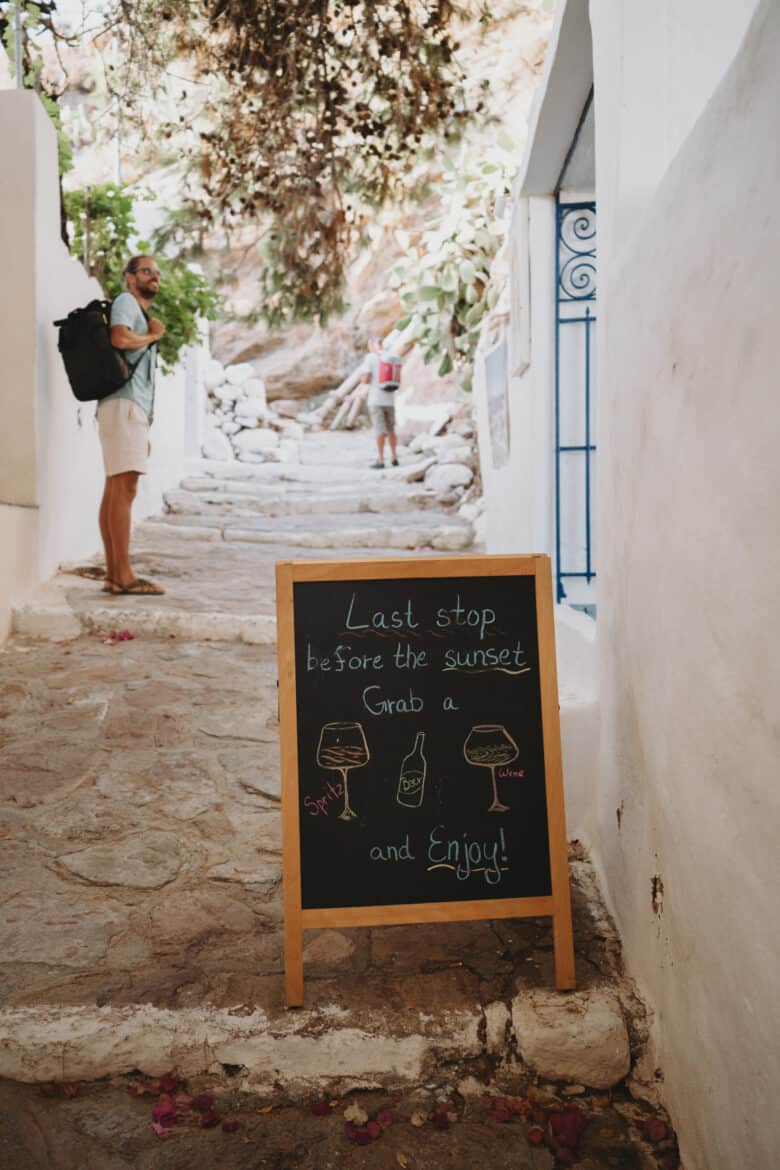 Last stop
before the sunset
Grab a
Spritz
Beer
Wine
and Enjoy!